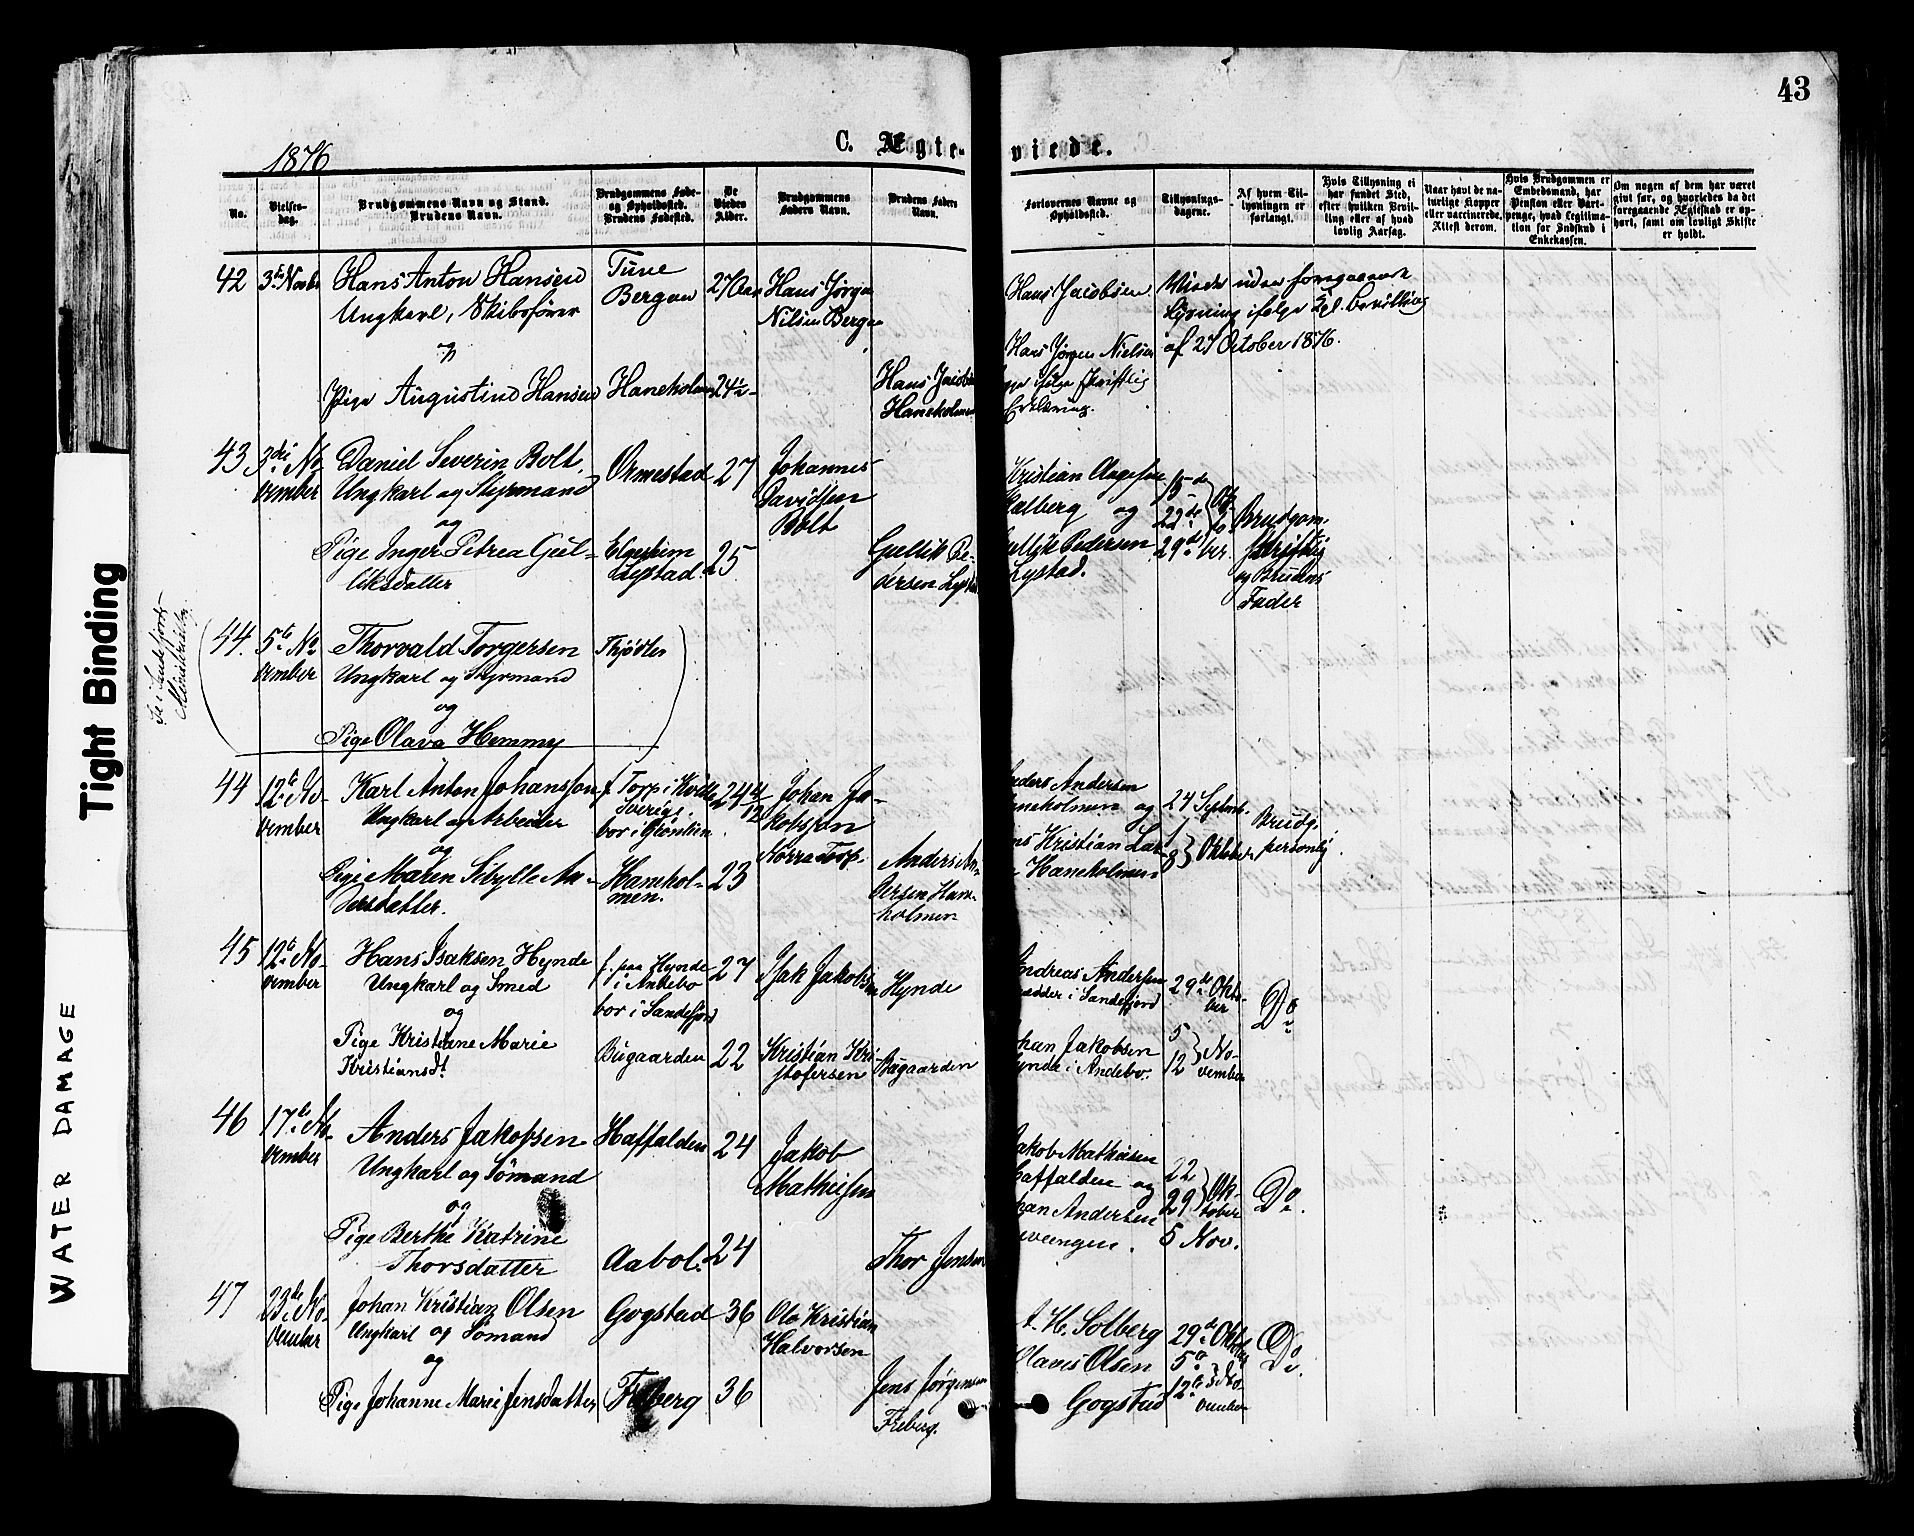 43
C. Ægte-viede.
1876
No.
Vielses-
dag.
Brudgommens Navn og Stand.
Brudens Navn.
Brudgommens Føde-
og Opholdssted.
Brudens Fødested.
De
Viedes
Alder.
Brudgommens
Faders Navn.
Brudens Faders
Navn.
Forlovernes Navne og
Opholdssted.
Tillysnings-
dagene.
Af hvem Til-
lysningen er
forlangt.
Hvis Tillysning ei
har fundet Sted,
efter hvilken Bevil-
ling eller af hvad
lovlig Aarsag.
Naar havt de na-
turlige Kopper
eller vaccinerede,
Attest derom.
Hvis Brudgommen er
Embedsmand, har
Pension eller Vart-
penge, hvad Legitima-
tion for Indskud i
Enkekassen.
Om nogen af dem har været
gift før, og hvorledes da det
foregaaende Ægteskab er op-
hørt, samt om lovligt Skifte
er holdt.
42
Hans Anton Hansen
Ungkarl, Skibsfører
Tune
Bergan
27
Hans Jørgen
Nilsen Bergan
Pige Augustine Hansen
Haneholmen
Hans Jacobsen
Haneholmen
Hans Jacobsen
Hans Jørgen Nielsen
ifølge skriftlig
Erklæring.
Viedes uden foregaaende
Lysning ifølge Kgl. bevilling
af 27 October 1876.
43
3die No-
vember
Daniel Severin Bolt,
Ungkarl og Styrmand
og
Pige Inger Petrea Gul-
liksdatter
Ormestad
27
Johannes
Davidsen
Bolt
Lystad.
25
Gullik Pe-
dersen Lystad
Kristian Aagesen
og
Gullik Pedersen
Lystad.
15de
22de
29de
Okto-
ber.
Brudgom.
skriftlig
og Brudens
Fader
Se i Sandefjords
Ministerialbog
44.
5te No-
vember
Thorvald Torgersen
Ungkarl og Styrmand
og
Pige Olava Hemmy
Thjødlen
44
12te No-
vember
Karl Anton Johansson
Ungkarl og Arbeider
og
Pige Maren Sibylle An-
dersdatter.
f Torp i
Sverige
bor i
24 4/12
Johan Ja-
kobsson
Norra Torp.
Hamhol-
men.
23
Anders An-
dersen Ham-
holmen
Anders Andersen
Haneholmen og
Hans Kristian Lar-
Haneholmen
24 Septemb.
1
8 } Oktober
Brudg.
personlig
45
12te No-
vember
Hans Isaksen Hynde
Ungkarl og Smed
og
Pige Kristiane Marie
Kristiansdt
f. paa Hynde
i Andebo
bor i Sandefjord
27
Isak Jakobsen
Hynde
Bugaarden
22
Kristian Kri-
stofersen
Bugaarden
Andreas Andersen
i Sandefjord
Johan Jakobsen
Hynde i Andebo.
29de Okto-
ber
5
12 } No-
vember
Do
46
17de No-
vember
Anders Jakobsen
Ungkarl og Sømand
og
Pige Berthe Katrine
Thorsdatter
Haffalden
24
Jakob
Mathiesen
Aabol.
24
Thor Jensen
Jakob Mathiesen
Haffalden og
Johan Andersen
22
29 } Ok-
tober
5 Nov.
Do.
47
23de No-
vember
Johan Kristian Olsen
Ungkarl og Sømand
og
Pige Johanne Marie Jensdatter
Gogstad
36
Ole Kristian
Halvorsen
Freberg
36
Jens Jørgensen
Freberg.
H. Solberg
Olavis Olsen
Gogstad
29de Oktober
5te
12te } No-
vember
Do
Tight Binding
WATER DAMAGE